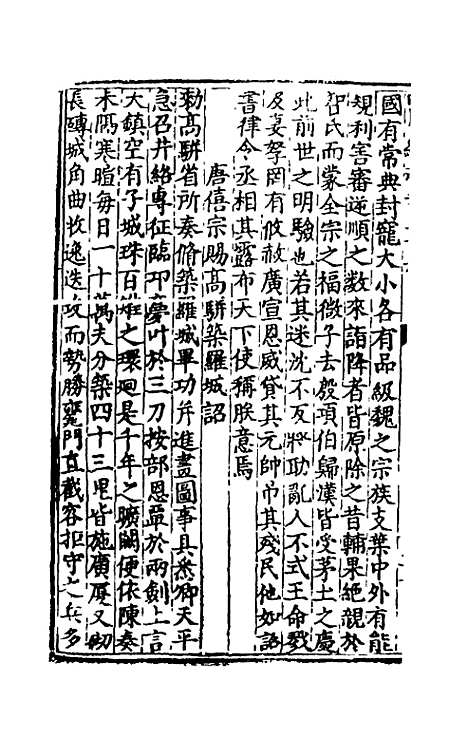 國有常典封寵大小各有品級魏之宗族支葉中外有能
規利害審逆順之數來詣降者皆原除之昔輔果絕親於
智氏而蒙全宗之福微子去殷項伯歸漢皆受茅土之慶
此前世之明驗也若其迷沈不反將助亂人不式王命戮
及妻孥罔有攸赦廣宣恩威貸其元帥弔其殘民他如詔
書律令丞相其露布天下使稱朕意焉
唐僖宗賜高駢築羅城詔
勑高駢省所奏脩築羅城畢功并進畫圖事具悉卿天平
急召井絡專征臨邛慶叶於三刀按部恩單於兩劍上言
大鎮空有子城殊百雉之環迴是千年之曠闕便依陳奏
未隔寒暄每日一十萬夫分築四十三里皆施廣厦又砌
長磚城角曲收逸迭攻而勢勝甕門直截容拒守之兵多